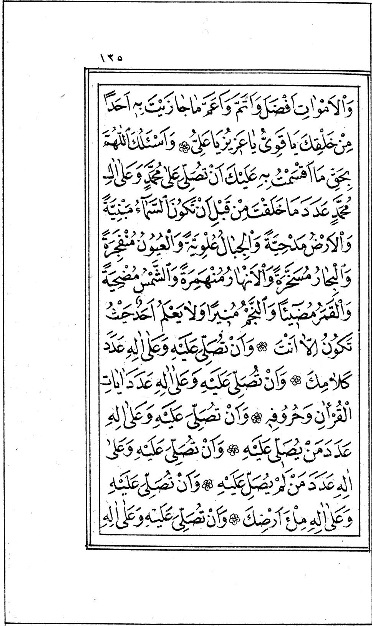 ١٣٥
وَالْاَمْوَاتِ اَفْضَلَ وَاَتَمَّ وَاَعَمَّ مَا جَازَيْتَ بِهٖ اَحَدًا
مِنْ خَلْقِكَ يَا قَوِيُّ يَا عَزِيزُ يَا عَلِيُّ ۞ وَاَسْئَلُكَ اَللّٰهُمَّ
بِحَقِّ مَا اَقْسَمْتُ بِهٖ عَلَيْكَ اَنْ تُصَلِّيَ عَلٰى مُحَمَّدٍ وَعَلٰى اٰلِ
مُحَمَّدٍ عَدَدَ مَا خَلَقْتَ مِنْ قَبْلِ اَنْ تَكُونَ السَّمَاءُ مَبْنِيَّةً
وَالْاَرْضُ مَدْحِيَّةً وَالْجِبَالُ عُلْوِيَّةً وَالْعُيُونُ مُنْفَجِرَةً
وَالْبِحَارُ مُسَخَّرَةً وَالْاَنْهَارُ مُنْهَمِرَةً وَالشَّمْسُ مُضْحِيَةً
وَالْقَمَرُ مُضِيئًا وَالنَّجْمُ مُنِيرًا وَلَا يَعْلَمُ اَحَدٌ حَيْثُ
تَكُونُ اِلَّا اَنْتَ ۞ وَاَنْ تُصَلِّيَ عَلَيْهِ وَعَلٰى اٰلِهٖ عَدَدَ
كَلَامِكَ ۞ وَاَنْ تُصَلِّيَ عَلَيْهِ وَعَلٰى اٰلِهٖ عَدَدَ اٰيَاتِ
الْقُرْاٰنِ وَحُرُوفِهٖ ۞ وَاَنْ تُصَلِّيَ عَلَيْهِ وَعَلٰى اٰلِهٖ
عَدَدَ مَنْ يُصَلِّي عَلَيْهِ ۞ وَاَنْ تُصَلِّيَ عَلَيْهِ وَعَلٰى
اٰلِهٖ عَدَدَ مَنْ لَمْ يُصَلِّ عَلَيْهِ ۞ وَاَنْ تُصَلِّيَ عَلَيْهِ
وَعَلٰى اٰلِهٖ مِلْءَ اَرْضِكَ ۞ وَاَنْ تُصَلِّيَ عَلَيْهِ وَعَلٰى اٰلِهٖ